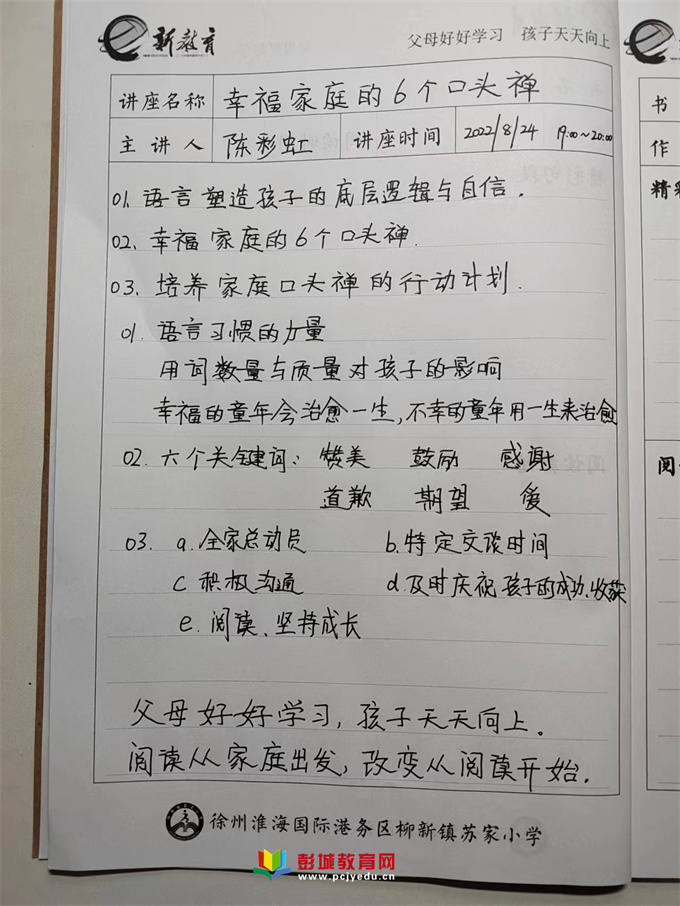 新教育 父母好好学习 孩子天天向上
讲座名称 幸福家庭的6个口头禅
主讲人 陈彩虹 讲座时间 2022/8/24 19:00~20:00
01. 语言塑造孩子的底层逻辑与自信.
02. 幸福家庭的6个口头禅.
03. 培养家庭口头禅的行动计划.
01. 语言习惯的力量
用词数量与质量对孩子的影响
幸福的童年会治愈一生,不幸的童年用一生来治愈
02. 六个关键词: 赞美 鼓励 感谢
道歉 期望 爱
03. a.全家总动员 b.特定交谈时间
c 积极沟通 d.及时庆祝孩子的成功、收获
e.阅读、坚持成长
父母好好学习,孩子天天向上。
阅读从家庭出发,改变从阅读开始.
徐州淮海国际港务区柳新镇苏家小学
彭城教育网
www.pcjyedu.cn
书
作
精彩
阅